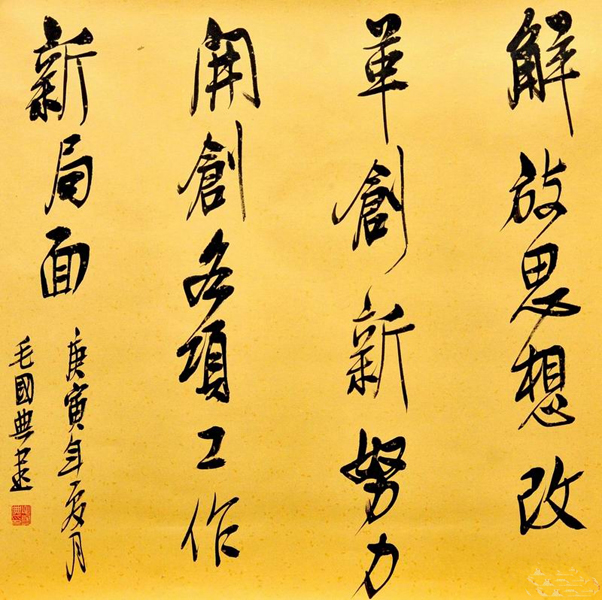 解放思想改
革創新努力
開創各項工作
新局面
庚寅年夏月
毛國典書